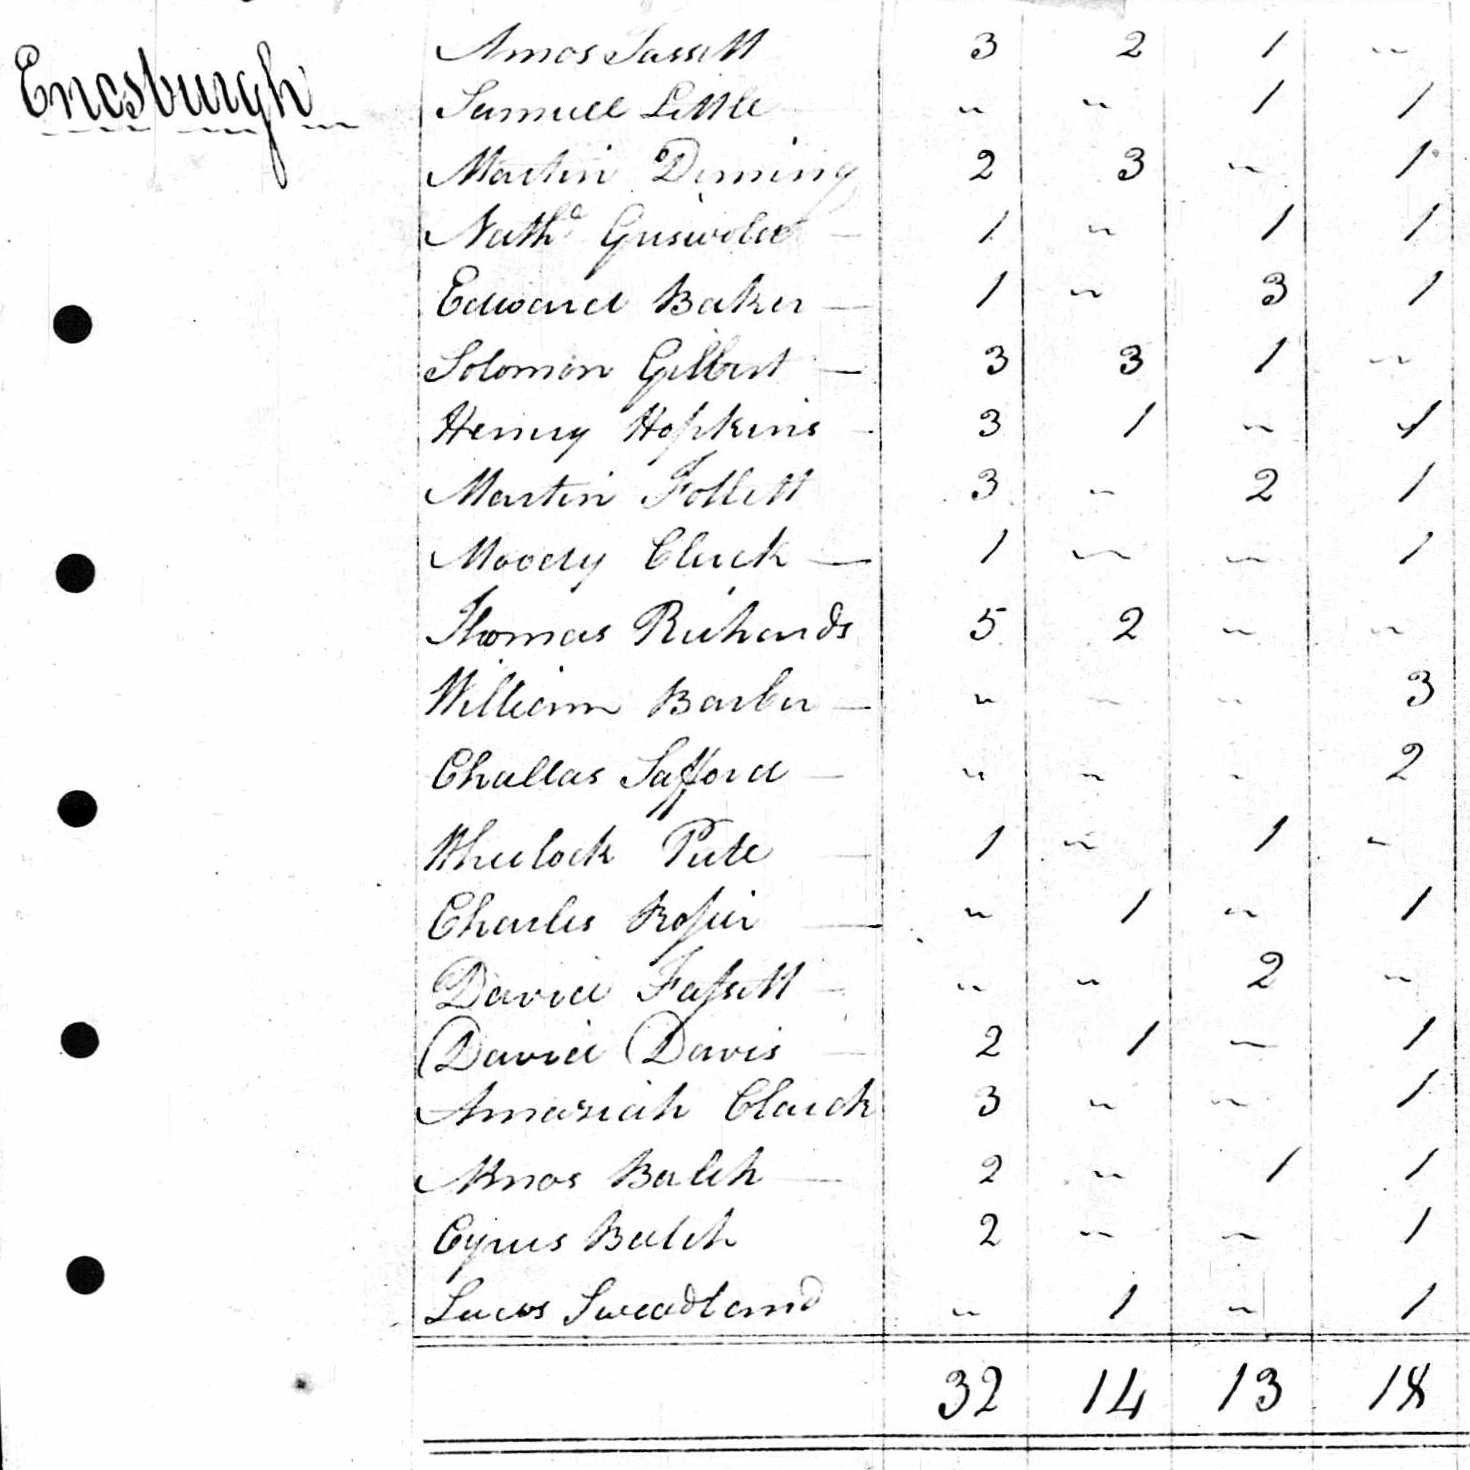 Enosburgh
Amos Fassett 3 2 1 "
Samuel Little " " 1 1
Martin Deming 2 3 " 1
Nathl Griswold 1 " 1 1
Edward Baker 1 " 3 1
Solomon Gilbert 3 3 1 "
Henry Hopkins 3 1 " 1
Martin Follett 3 " 2 1
Moody Clark 1 " " 1
Thomas Richards 5 2 " "
William Barber " " " 3
Challas Safford " " " 2
Wheelock 1 " 1 "
Charles " 1 " 1
David Fassett " " 2 "
David Davis 2 1 " 1
Amaziah Clarck 3 " " 1
Amos Balch 2 " 1 1
Cyrus Balch 2 " " 1
Sweadland " 1 " 1
32 14 13 18